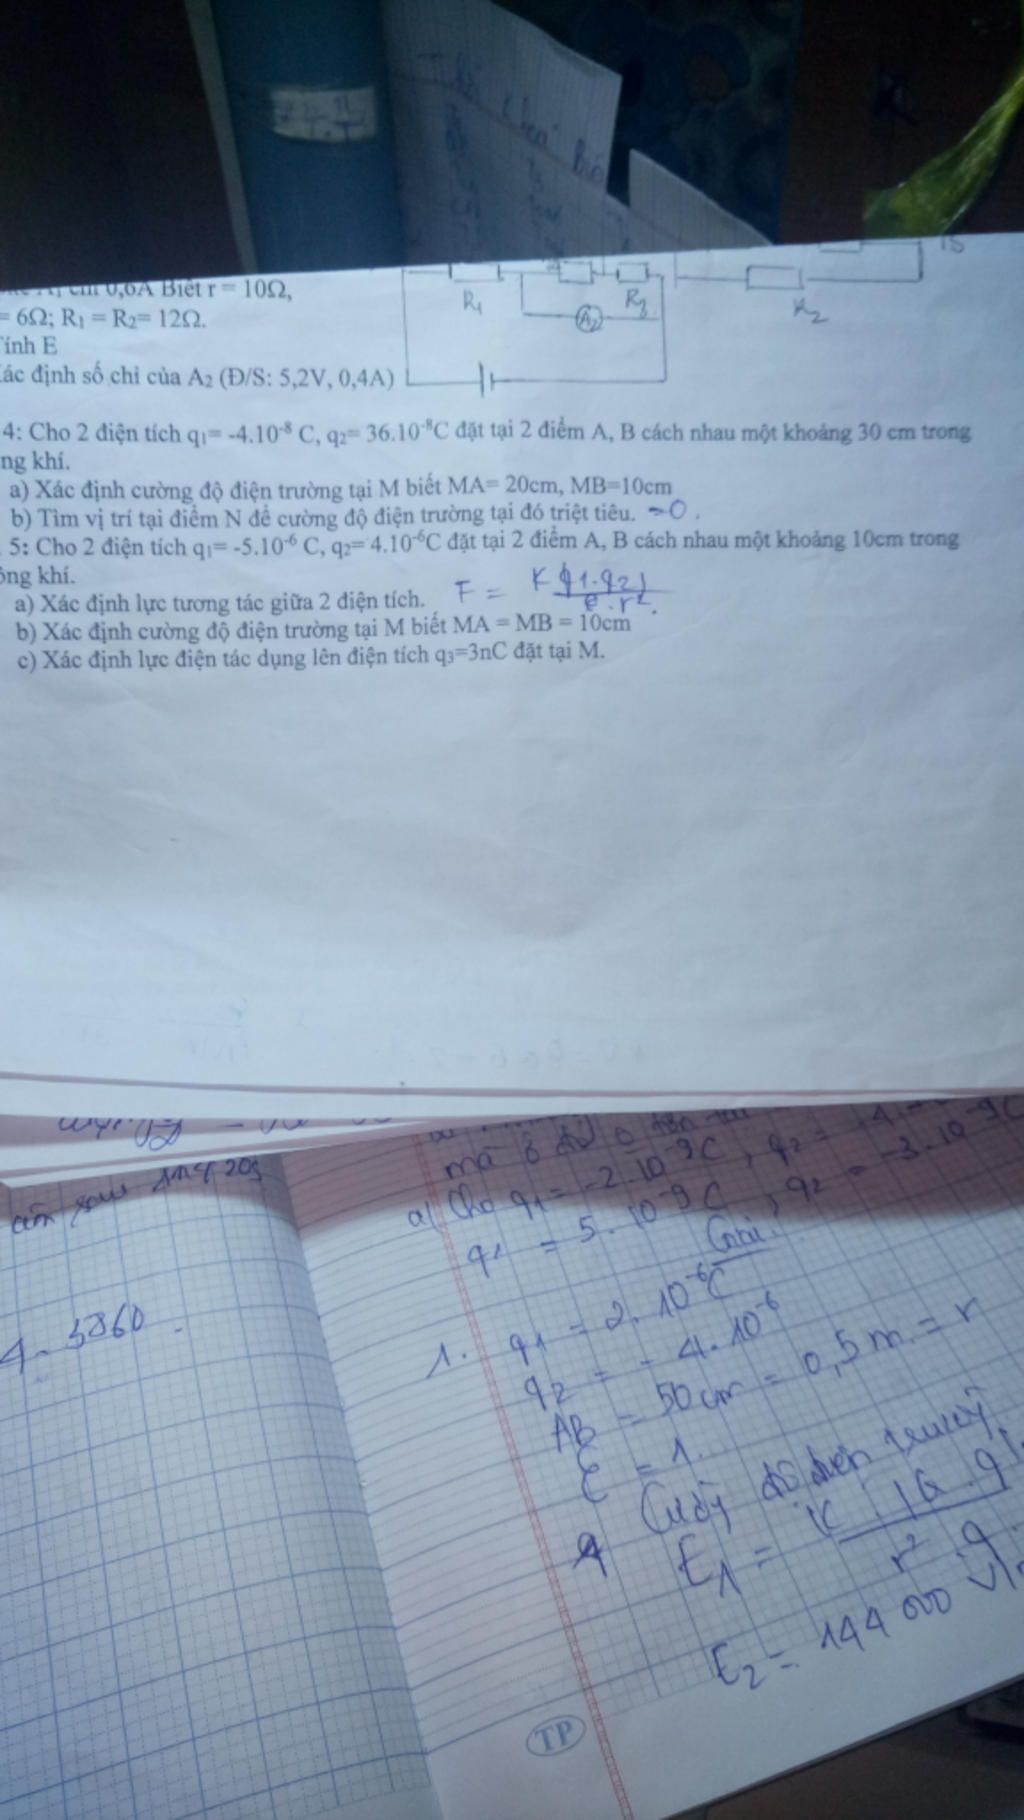 R₁
R₃
A₂
R₂
15
A₁ chỉ 0,6A Biết r = 10Ω,
= 6Ω; R₁ = R₂= 12Ω.
Tính E
Xác định số chỉ của A₂ (Đ/S: 5,2V, 0,4A)
4: Cho 2 điện tích q₁= -4.10⁻⁸ C, q₂= 36.10⁻⁸C đặt tại 2 điểm A, B cách nhau một khoảng 30 cm trong
ng khí.
a) Xác định cường độ điện trường tại M biết MA= 20cm, MB=10cm
b) Tìm vị trí tại điểm N để cường độ điện trường tại đó triệt tiêu. =0.
5: Cho 2 điện tích q₁= -5.10⁻⁶ C, q₂= 4.10⁻⁶C đặt tại 2 điểm A, B cách nhau một khoảng 10cm trong
ông khí.
a) Xác định lực tương tác giữa 2 điện tích. F = K|q1.q2| / e.r².
b) Xác định cường độ điện trường tại M biết MA = MB = 10cm
c) Xác định lực điện tác dụng lên điện tích q₃=3nC đặt tại M.
a) Cho q₁ = -2.10⁻⁹C, q₂ = 4
q₁ = 5.10⁻⁹C, q₂ = -3.10⁻⁹C
Giải
4. 5860
1. q₁ = 2.10⁻⁶C
q₂ = -4.10⁻⁶
AB = 50cm = 0,5m = r
ε = 1.
Cường độ điện trường
E₁ =
E₂ = 144 000 V/
TP